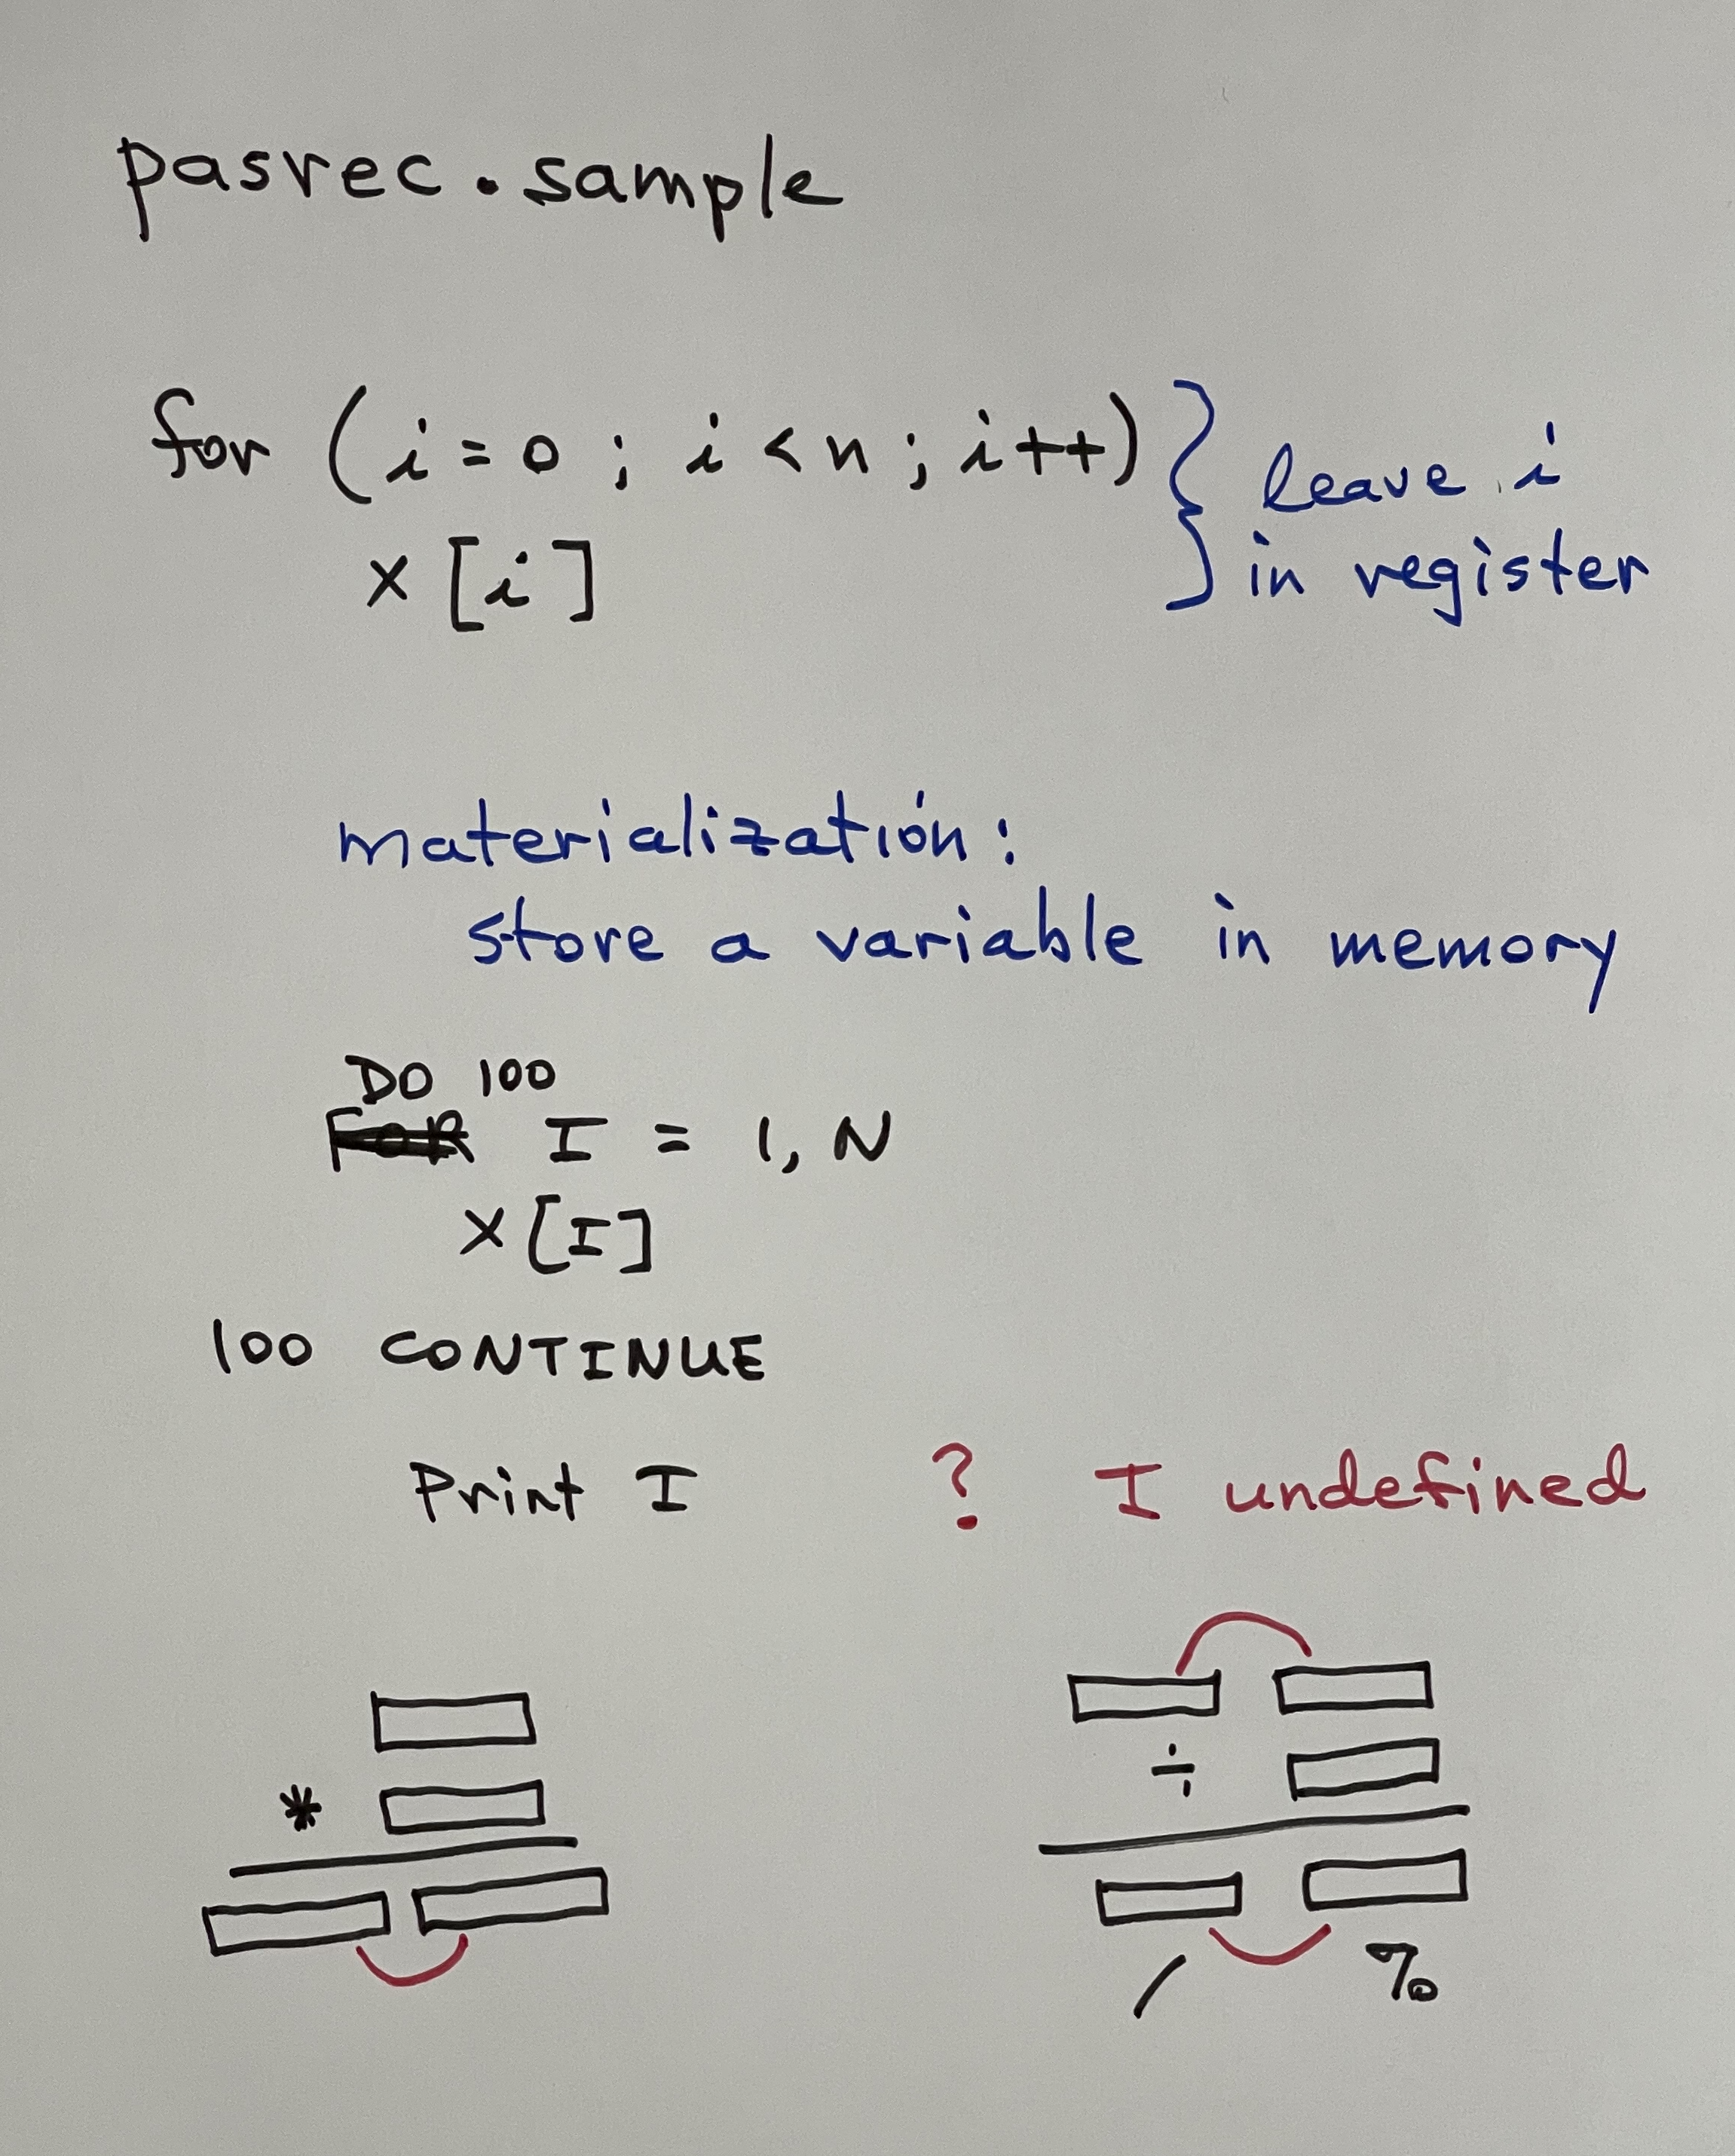 pasrec.sample
for (i=0; i<n; i++) } leave i
x[i] in register
materialization:
store a variable in memory
DO 100
FOR I = 1, N
X[I]
100 CONTINUE
Print I ? I undefined
÷
*
/ %